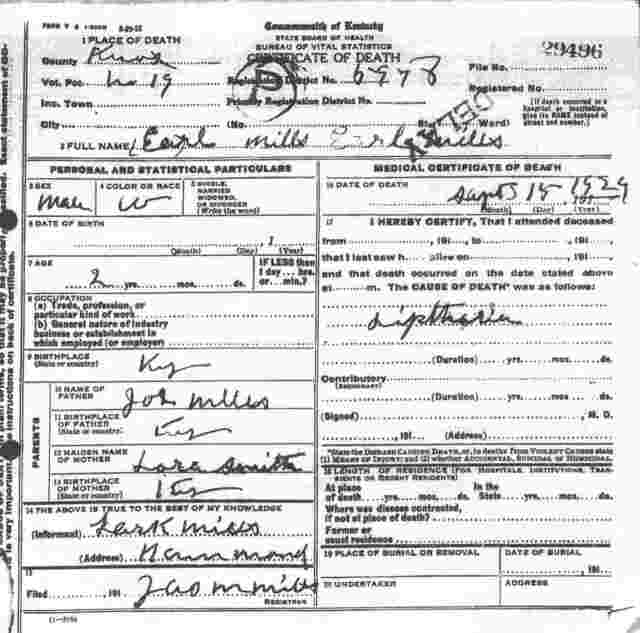 Commonwealth of Kentucky
STATE BOARD OF HEALTH
BUREAU OF VITAL STATISTICS
CERTIFICATE OF DEATH
1 PLACE OF DEATH
County Knox
File No. 29496
Vot. Pct. No 19
Registration District No. 6978
Registered No.
Inc. Town
Primary Registration District No.
(If death occurred in a hospital or institution, give its NAME instead of street and number.)
City (No. St., Ward)
DELAYED
2 FULL NAME Earl mills Earl Mills
PERSONAL AND STATISTICAL PARTICULARS
3 SEX Male
4 COLOR OR RACE W
5 SINGLE, MARRIED WIDOWED, OR DIVORCED (Write the word)
6 DATE OF BIRTH
, 1
(Month) (Day) (Year)
7 AGE
2 yrs. mos. ds.
IF LESS than 1 day... hrs. or... min.?
8 OCCUPATION
(a) Trade, profession, or particular kind of work
(b) General nature of industry business or establishment in which employed (or employer)
9 BIRTHPLACE (State or country) Ky
PARENTS
10 NAME OF FATHER Job mills
11 BIRTHPLACE OF FATHER (State or country) Ky
12 MAIDEN NAME OF MOTHER Lora Smith
13 BIRTHPLACE OF MOTHER (State or country) Ky
14 THE ABOVE IS TRUE TO THE BEST OF MY KNOWLEDGE
(Informant) mills
(Address) Hammond
15
Filed , 191 Jas m mills
REGISTRAR
MEDICAL CERTIFICATE OF DEATH
16 DATE OF DEATH
Sept 15 1929
(Month) (Day) (Year)
17 I HEREBY CERTIFY, That I attended deceased
from , 191 , to , 191 ,
that I last saw h alive on , 191 ,
and that death occurred on the date stated above
at m. The CAUSE OF DEATH* was as follows:
Diptheria
(Duration) yrs. mos. ds.
Contributory
(SECONDARY)
(Duration) yrs. mos. ds.
(Signed) , M. D.
, 191 (Address)
*State the DISEASE CAUSING DEATH, or, in deaths from VIOLENT CAUSES state (1) MEANS OF INJURY; and (2) whether ACCIDENTAL, SUICIDAL OR HOMICIDAL.
18 LENGTH OF RESIDENCE (FOR HOSPITALS, INSTITUTIONS, TRANSIENTS OR RECENT RESIDENTS)
At place of death yrs. mos. ds. In the State yrs. mos. ds.
Where was disease contracted, if not at place of death?
Former or usual residence
19 PLACE OF BURIAL OR REMOVAL
DATE OF BURIAL
, 191
20 UNDERTAKER
ADDRESS